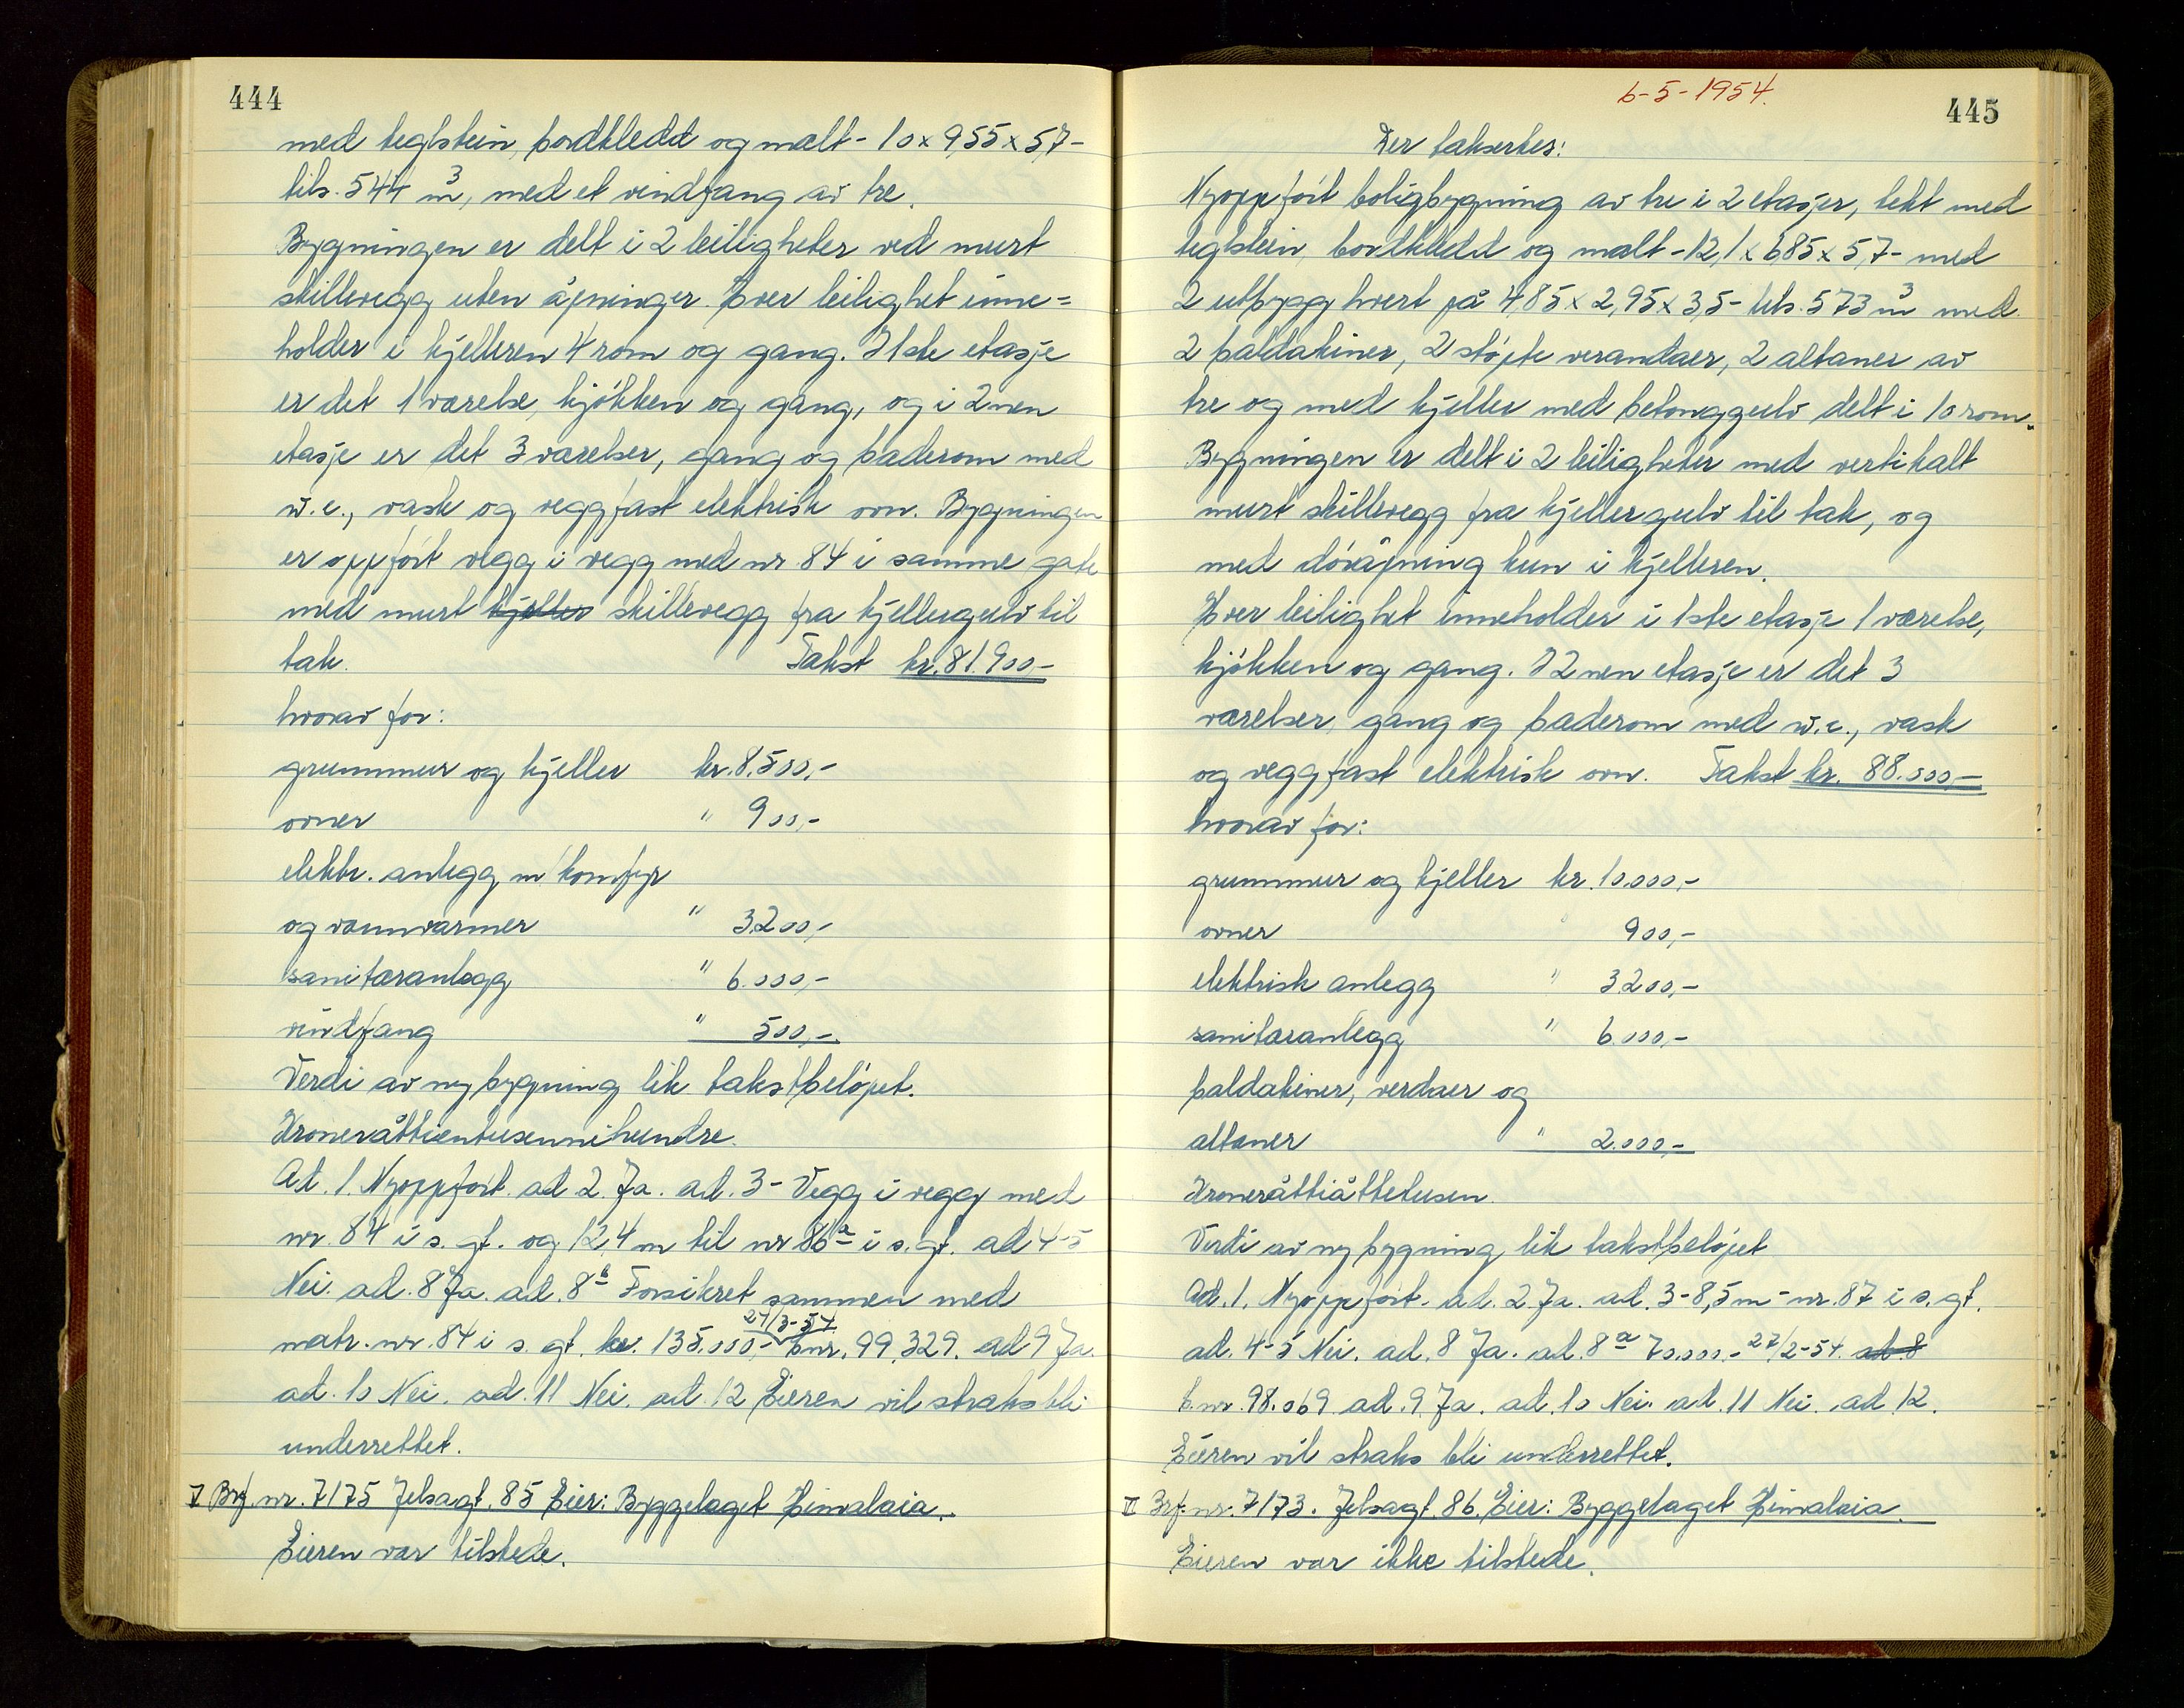 444
med teglstein, bordkledd og malt - 10 x 9,55 x 5,7 -
tils. 544 m³, med et vindfang av tre.
Bygningen er delt i 2 leiligheter ved murt
skillevegg uten åpninger. Hver leilighet inne=
holder i kjelleren 4 rom og gang. I 1ste etasje
er det 1 værelse, kjøkken og gang, og i 2nen
etasje er det 3 værelser, gang og baderom med
w.c., vask og veggfast elektrisk ovn. Bygningen
er oppført vegg i vegg med nr. 84 i samme gate
med murt kjeller skillevegg fra kjellergulv til
tak. Takst kr. 81.900,-
hvorav for:
grunnmur og kjeller kr. 8.500,-
ovner " 900,-
elektr. anlegg m/komfyr
og vannvarmer " 3200,-
sanitæranlegg " 6.000,-
vindfang " 500,-
Verdi av ny bygning lik takstbeløpet.
Kroneråttientusennihundre.
Ad. 1. Nyoppført. ad 2. Ja. ad. 3 - Vegg i vegg med
nr. 84 i s. gt. og 12,4 m til nr 86a i s. gt. ad 4-5
Nei. ad. 8 Ja. ad. 8b Forsikret sammen med
27/3-54
matr. nr. 84 i s. gt. kr. 135.000,- bnr. 99.329. ad 9 Ja.
ad. 10 Nei. ad. 11 Nei. ad. 12 Eieren vil straks bli
underrettet.
V Brf. nr. 7175 Jelsagt. 85 Eier: Byggelaget Himalaia.
Eieren var tilstede.
6-5-1954.
445
Der taksertes:
Nyoppført boligbygning av tre i 2 etasjer, tekt med
teglstein, bordkledd og malt - 12,1 x 6,85 x 5,7 - med
2 utbygg hvert på 4,85 x 2,95 x 3,5 - tils. 573 m³ med
2 baldakiner, 2 støpte verandaer, 2 altaner av
tre og med kjeller med betonggulv delt i 10 rom.
Bygningen er delt i 2 leiligheter med vertikalt
murt skillevegg fra kjellergulv til tak, og
med døråpning kun i kjelleren.
Hver leilighet inneholder i 1ste etasje 1 værelse,
kjøkken og gang. I 2nen etasje er det 3
værelser, gang og baderom med w.c., vask
og veggfast elektrisk ovn. Takst kr. 88.000,-
hvorav for:
grunnmur og kjeller kr. 10.000,-
ovner " 900,-
elektrisk anlegg " 3200,-
sanitæranlegg " 6.000,-
baldakiner, verdaer og
altaner " 2.000,-
Kroneråttiåttetusen.
Verdi av ny bygning lik takstbeløpet
Ad. 1. Nyoppført. ad. 2 Ja. ad. 3 - 8,5 m - nr. 87 i s. gt.
ad. 4-5 Nei. ad. 8 Ja. ad. 8a 70.000.- 27/2-54. ad 8
b.nr. 98.069 ad. 9. Ja. ad. 10 Nei. ad. 11 Nei. ad 12.
Eieren vil straks bli underrettet.
VI Brf. nr. 7173. Jelsagt. 86. Eier: Byggelaget Himalaia.
Eieren var ikke tilstede.